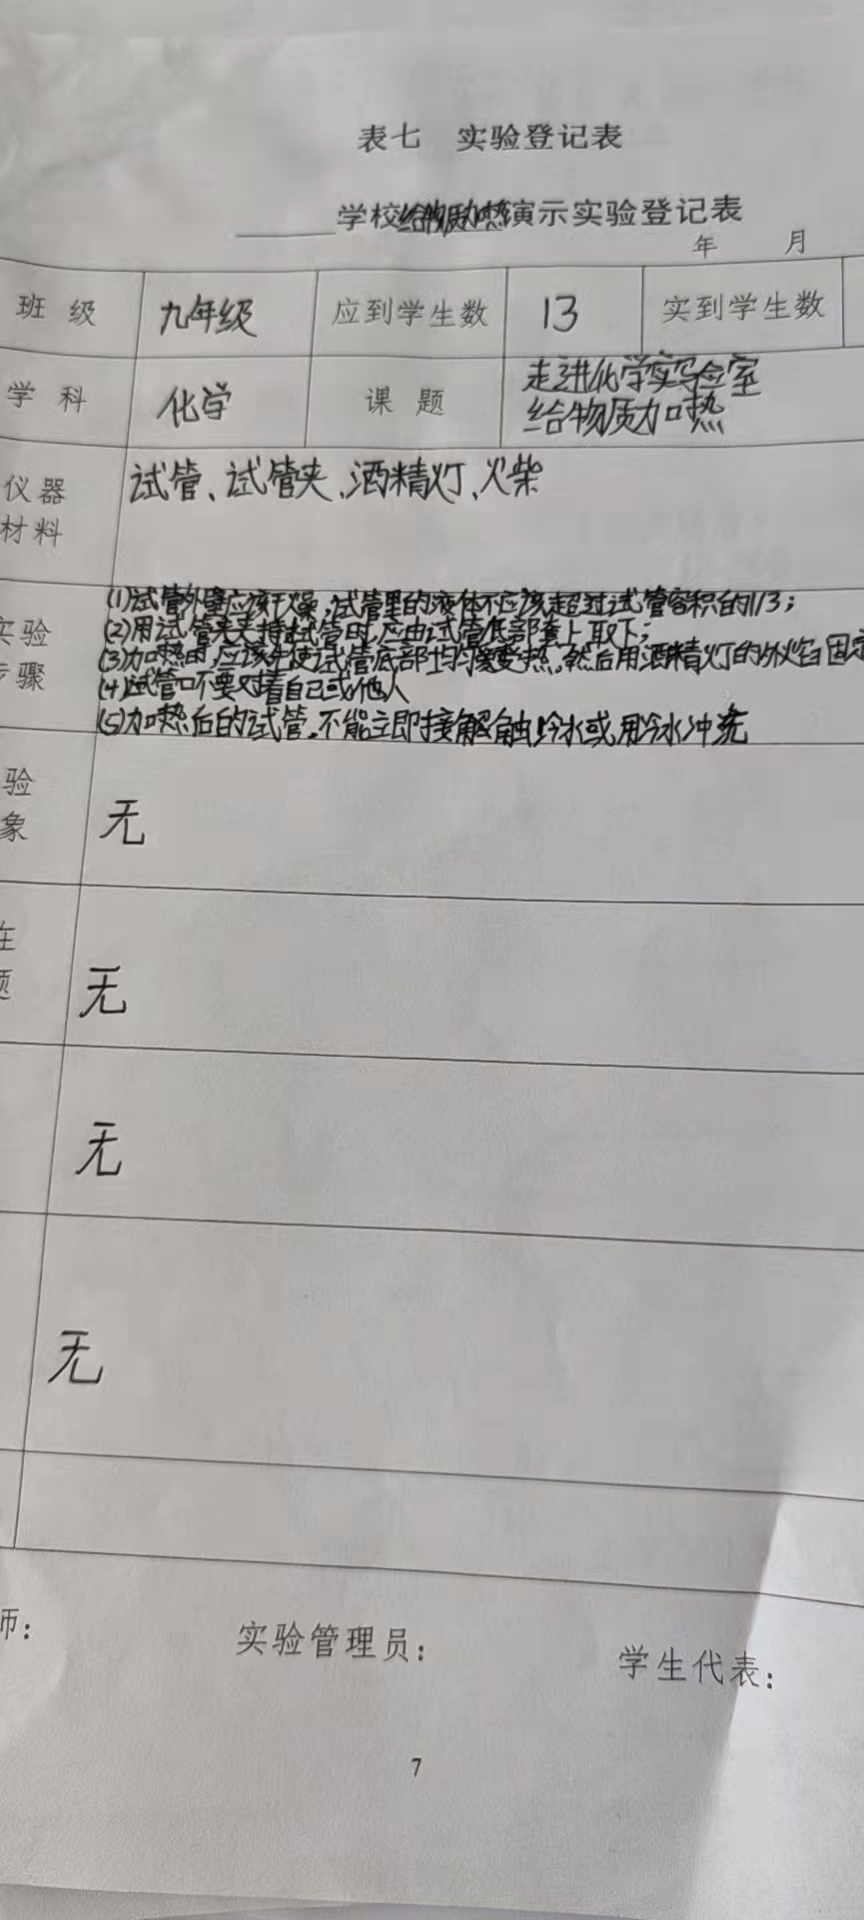 表七 实验登记表
学校给物质加热演示实验登记表
年 月
班 级 九年级 应到学生数 13 实到学生数
学 科 化学 课 题 走进化学实验室
给物质加热
仪器 试管、试管夹、酒精灯、火柴
材料
(1)试管外壁应该干燥,试管里的液体不应该超过试管容积的1/3;
实验 (2)用试管夹夹持试管时,应由试管底部套上取下;
步骤 (3)加热时,应该先使试管底部均匀受热,然后用酒精灯的外焰固定
(4)试管口不要对着自己或他人
(5)加热后的试管,不能立即接解触冷水或用冷水冲洗
验
象 无
在
题 无
无
无
师: 实验管理员: 学生代表:
7